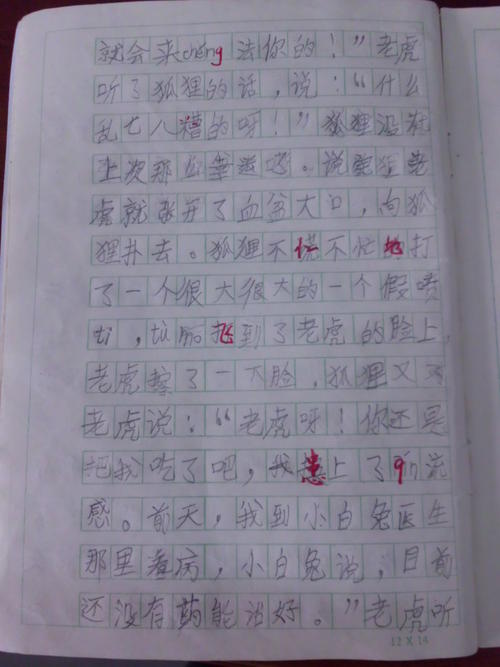 就会来chéng法你的！”老虎
听了狐狸的话，说：“什么
乱七八糟的呀！”狐狸没
上次那
虎就张开了血盆大口，向狐
狸扑去。狐狸不慌不忙地打
了一个很大很大的一个假喷
ti，飞到了老虎的脸上，
老虎擦了一下脸，狐狸又对
老虎说：“老虎呀！你还是
把我吃了吧，我患上了流
感。前天，我到小白兔医生
那里看病，小白兔说，目前
还没有药能治好。”老虎听
12 X 14